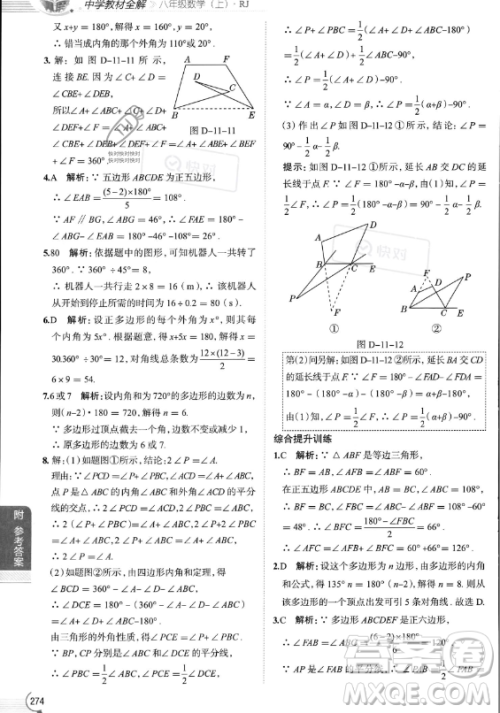 中学教材全解 八年级数学(上)·RJ
又x+y=180°-110°=70°,
∴ 错当成内角的那个外角为110°或20°.
3.解:如图 D-11-11 所示,
连接 BE.因为∠C+∠D=
∠CBE+∠DEB,
所以∠A+∠ABC+∠C+∠D+
∠DEF+∠F=∠A+∠ABC+
∠CBE+∠DEB+∠DEF+∠F=∠A+∠ABE+∠BEF
+∠F=360°.
A F C D B E
图 D-11-11
4.A 解析:∵ 五边形ABCDE为正五边形,
∴ ∠EAB=(5-2)×180°/5=108°.
∵ AF∥BG,∠ABG=46°,∴ ∠FAE=180°-
∠ABG-∠EAB=180°-46°-108°=26°.
5.80 解析:依据题中的图形,可知机器人一共转了
360°.∵ 360°÷45°=8,
∴ 机器人一共行走2×8=16(m),∴ 该机器人
从开始到停止所需时间为16÷0.2=80(s).
6.D 解析:设正多边形的每个外角为x°,则其每
个内角为5x°.根据题意,得x+5x=180,解得x=
30.360°÷30°=12,对角线总条数为12×(12-3)/2=
6×9=54.
7.6或7 解析:设内角和为720°的多边形的边数为n,
则(n-2)·180°=720°,解得n=6.
∵ 多边形过顶点截去一个角,边数不变或减少1,
∴ 原多边形的边数为6或7.
8.解:(1)如题图①所示,结论:2∠P=∠A.
理由:∵ ∠PCD=∠P+∠PBC,∠ACD=∠A+∠ABC,
点P是∠ABC的内角和∠ACD的外角的平分
线的交点,∴ 2∠PCD=∠ACD,2∠PBC=∠ABC,
∴ 2(∠P+∠PBC)=∠A+∠ABC,2∠P+2∠PBC
=∠A+∠ABC,2∠P+∠ABC=∠A+∠ABC,
∴ 2∠P=∠A.
(2)如题图②所示,由四边形内角和定理,得
∠BCD=360°-∠A-∠D-∠ABC,
∴ ∠DCE=180°-(360°-∠A-∠D-∠ABC)=
∠A+∠D+∠ABC-180°.
由三角形的外角性质,得∠PCE=∠P+∠PBC.
∵ BP,CP分别是∠ABC和∠DCE的平分线,
∴ ∠PBC=1/2∠ABC,∠PCE=1/2∠DCE,
∴ ∠P+∠PBC=1/2(∠A+∠D+∠ABC-180°)
∴ ∠P=1/2(∠A+∠D)-90°.
∵ ∠A=α,∠D=β,∴ ∠P=1/2(α+β)-90°.
(3)作出∠P如图 D-11-12 ①所示,结论:∠P=
90°-1/2α-1/2β.
提示:如图 D-11-12 ①所示,延长AB交DC的延
长线于点F.∵ ∠F=180°-α-β,∠P=1/2∠F,∴ ∠P=
1/2(180°-α-β)=90°-1/2α-1/2β.
D A B C E P F
①
F A D P B C E
②
图 D-11-12
第(2)问另解:如图 D-11-12 ②所示,延长BA交CD
的延长线于点F.∵ ∠F=180°-∠FAD-∠FDA=
180°-(180°-α)-(180°-β)=α+β-180°,
由(1)知,∠P=1/2∠F,∴ ∠P=1/2(α+β)-90°.
综合提升训练
1.C 解析:∵ △ABF是等边三角形,
∴ AB=BF,∠AFB=∠ABF=60°.
在正五边形ABCDE中,AB=BC,∠ABC=108°,
∴ BF=BC,∠FBC=∠ABC-∠ABF=108°-60°
=48°.∴ ∠BFC=180°-∠FBC/2=66°,
∴ ∠AFC=∠AFB+∠BFC=60°+66°=126°.
2.D 解析:设这个多边形为n边形,由多边形的内角
和公式,得135°n=180°(n-2),解得n=8.则从
该多边形的一个顶点出发可引5条对角线.故选D.
3.C 解析:∵ 多边形ABCDEF是正六边形,
∴ ∠FAB=∠ABC=(6-2)×180°/6
附 参考答案
274
快对
答案圈
MXQE.COM